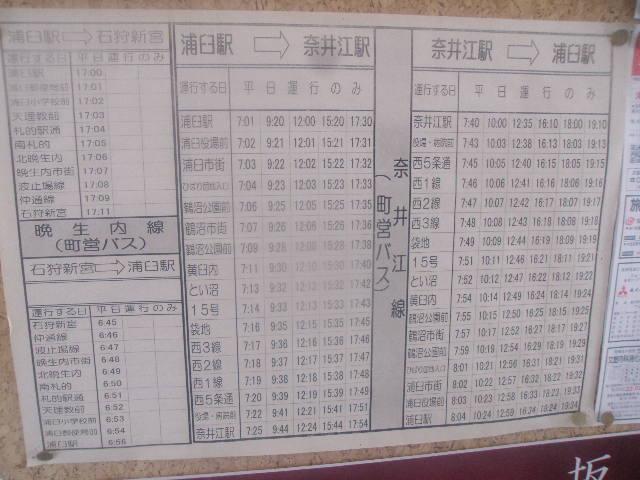 浦臼駅 ⇨ 石狩新宮
運行する日 平日運行のみ
浦臼駅 17:00
浦臼郵便局前 17:01
浦臼小学校前 17:02
天理教前 17:03
札的駅通 17:04
南札的 17:05
北晩生内 17:06
晩生内市街 17:07
波止場線 17:08
仲通線 17:09
石狩新宮 17:11
晩生内線
(町営バス)
石狩新宮 ⇨ 浦臼駅
運行する日 平日運行のみ
石狩新宮 6:45
仲通線 6:46
波止場線 6:47
晩生内市街 6:48
北晩生内 6:49
南札的 6:50
札的駅通 6:51
天理教前 6:52
浦臼小学校前 6:53
浦臼郵便局前 6:54
浦臼駅 6:56
浦臼駅 ⇨ 奈井江駅
運行する日 平日運行のみ
浦臼駅 7:01 9:20 12:00 15:20 17:30
浦臼役場前 7:02 9:21 12:01 15:21 17:31
浦臼市街 7:03 9:22 12:02 15:22 17:32
ひばり団地入口 7:04 9:23 12:03 15:23 17:33
鶴沼公園前 7:06 9:25 12:05 15:25 17:35
鶴沼市街 7:07 9:26 12:06 15:26 17:36
鶴沼公園前 7:09 9:28 12:08 15:28 17:38
黄臼内 7:11 9:30 12:10 15:30 17:40
とい沼 7:13 9:32 12:12 15:32 17:42
15号 7:14 9:33 12:13 15:33 17:43
袋地 7:16 9:35 12:15 15:35 17:45
西3線 7:17 9:36 12:16 15:36 17:46
西2線 7:18 9:37 12:17 15:37 17:47
西1線 7:19 9:38 12:18 15:38 17:48
西5条通 7:20 9:39 12:19 15:39 17:49
役場・病院前 7:22 9:41 12:21 15:41 17:51
奈井江駅 7:25 9:44 12:24 15:44 17:54
奈井江線
(町営バス)
奈井江駅 ⇨ 浦臼駅
運行する日 平日運行のみ
奈井江駅 7:40 10:00 12:35 16:10 18:00 19:10
役場・病院前 7:43 10:03 12:38 16:13 18:03 19:13
西5条通 7:45 10:05 12:40 16:15 18:05 19:15
西1線 7:46 10:06 12:41 16:16 18:06 19:16
西2線 7:47 10:07 12:42 16:17 18:07 19:17
西3線 7:48 10:08 12:43 16:18 18:08 19:18
袋地 7:49 10:09 12:44 16:19 18:09 19:19
15号 7:51 10:11 12:46 16:21 18:11 19:21
とい沼 7:52 10:12 12:47 16:22 18:12 19:22
黄臼内 7:54 10:14 12:49 16:24 18:14 19:24
鶴沼公園前 7:55 10:15 12:50 16:25 18:15 19:25
鶴沼市街 7:57 10:17 12:52 16:27 18:17 19:27
鶴沼公園前 7:59 10:19 12:54 16:29 18:19 19:29
ひばり団地入口 8:01 10:21 12:56 16:31 18:21 19:31
浦臼市街 8:02 10:22 12:57 16:32 18:22 19:32
浦臼役場前 8:03 10:23 12:58 16:33 18:23 19:33
浦臼駅 8:04 10:24 12:59 16:34 18:24 19:34
坂